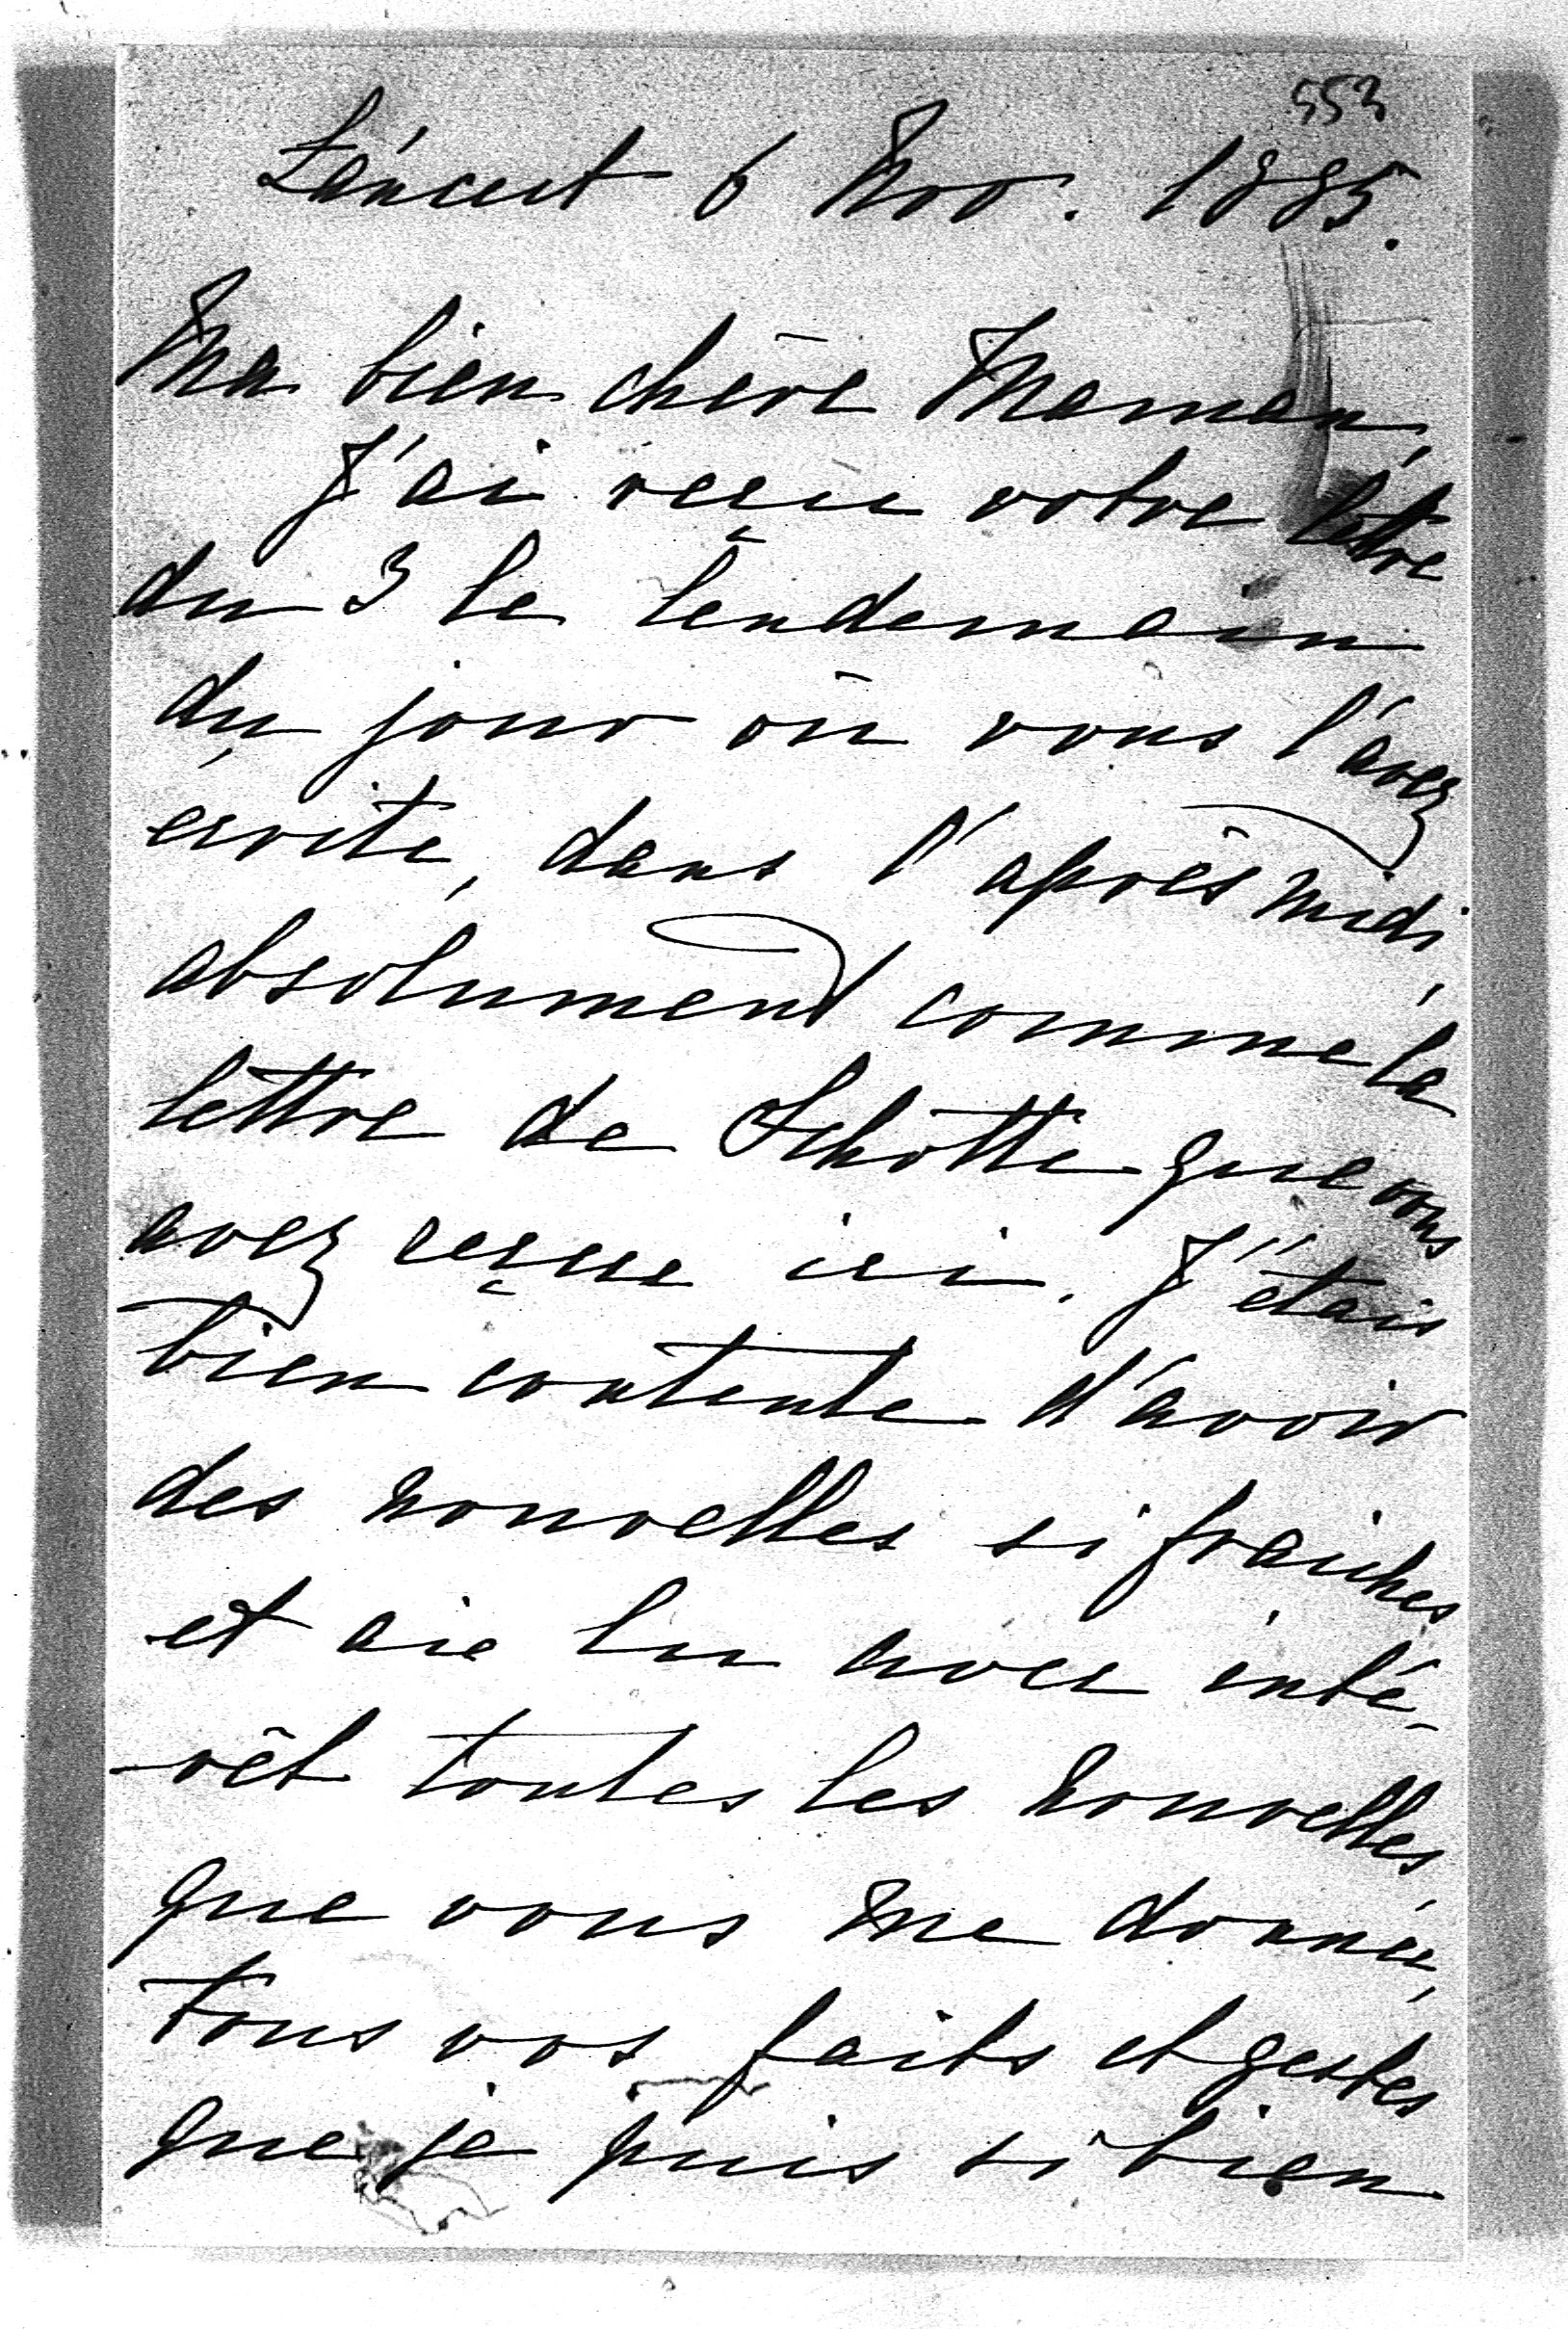 553
Łańcut 6 Nov. 1885.
Ma bien chère Maman,
J'ai reçu votre lettre
du 3 le lendemain
du jour où vous l'avez
écrite, dans l'après midi,
absolument comme la
lettre de Schotte que vous
avez reçue ici. J'étais
bien contente d'avoir
des nouvelles si fraiches
et aie lu avec inté-
-rêt toutes les nouvelles,
que vous me donnéz,
tous vos faits et gestes
que je puis si bien